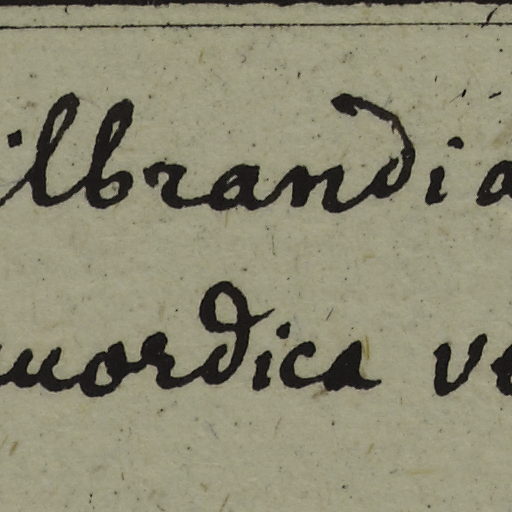 ilbrandia
uordica ve